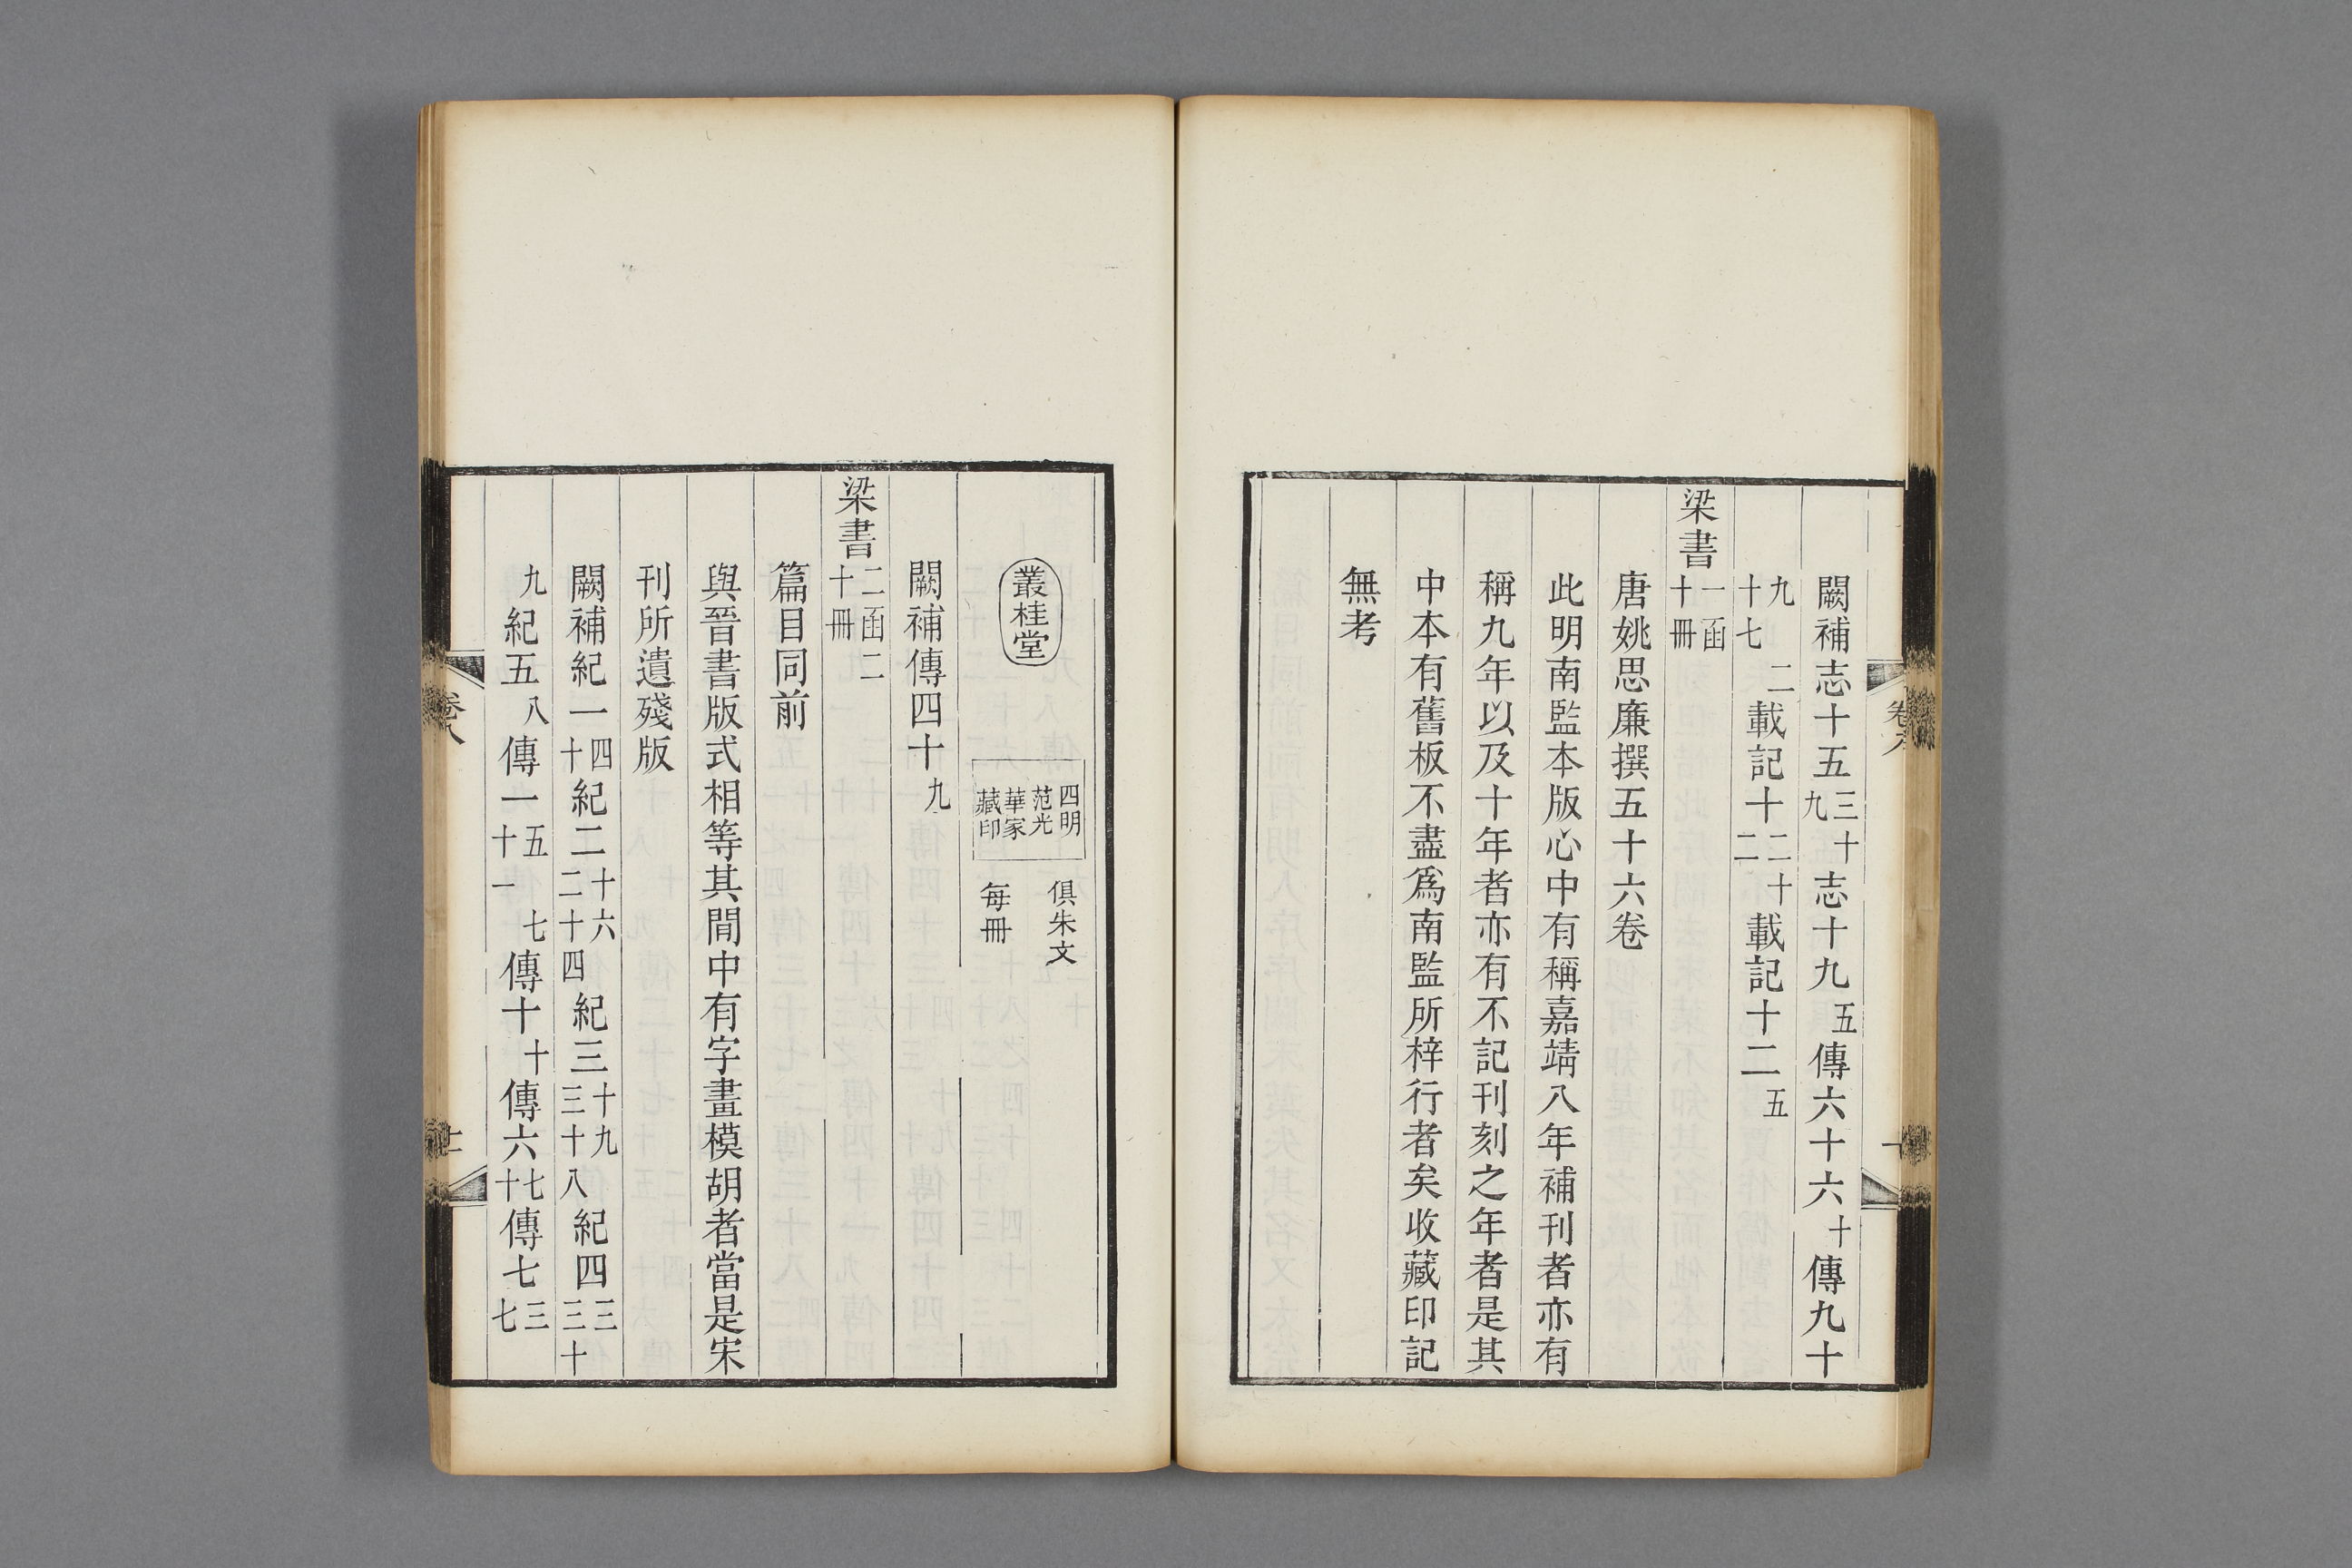 闕補志十五三十九志十九五傳六十六十傳九十
九十七二載記十二十二載記十二五
梁書一函十冊
唐姚思廉撰五十六卷
此明南監本版心中有稱嘉靖八年補刊者亦有
稱九年以及十年者亦有不記刊刻之年者是其
中本有舊板不盡爲南監所梓行者矣收藏印記
無考
叢桂堂
四明范光華家藏印
俱朱文每冊
闕補傳四十九
梁書二函二十冊
篇目同前
與晉書版式相等其間中有字畫模胡者當是宋
刊所遺殘版
闕補紀一四十紀二十六二十四紀三十九三十八紀四三三十
九紀五八傳一五十一七傳十十傳六七十傳七三七
卷八